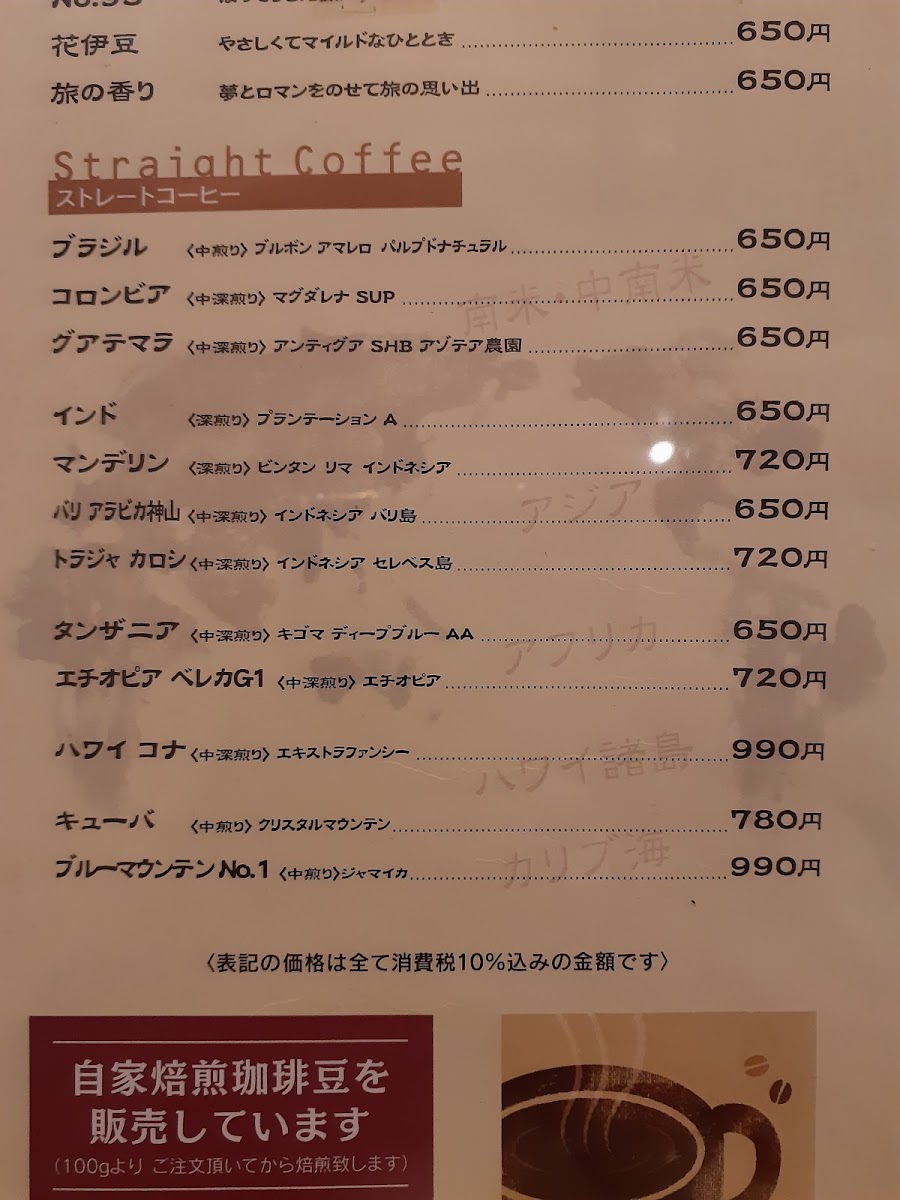 花伊豆 やさしくてマイルドなひととき 650円
旅の香り 夢とロマンをのせて旅の思い出 650円
Straight Coffee
ストレートコーヒー
ブラジル 〈中煎り〉 ブルボン アマレロ パルプドナチュラル 650円
南米・中南米
コロンビア 〈中深煎り〉 マグダレナ SUP 650円
グアテマラ 〈中深煎り〉 アンティグア SHB アゾテア農園 650円
インド 〈深煎り〉 プランテーション A 650円
マンデリン 〈深煎り〉 ビンタン リマ インドネシア 720円
アジア
バリ アラビカ神山 〈中深煎り〉 インドネシア バリ島 650円
トラジャ カロシ 〈中深煎り〉 インドネシア セレベス島 720円
タンザニア 〈中深煎り〉 キゴマ ディープブルー AA 650円
アフリカ
エチオピア ベレカG1 〈中深煎り〉 エチオピア 720円
ハワイ コナ 〈中深煎り〉 エキストラファンシー 990円
ハワイ諸島
キューバ 〈中煎り〉 クリスタルマウンテン 780円
カリブ海
ブルーマウンテン No.1 〈中煎り〉 ジャマイカ 990円
〈表記の価格は全て消費税10%込みの金額です〉
自家焙煎珈琲豆を
販売しています
(100gより ご注文頂いてから焙煎致します)